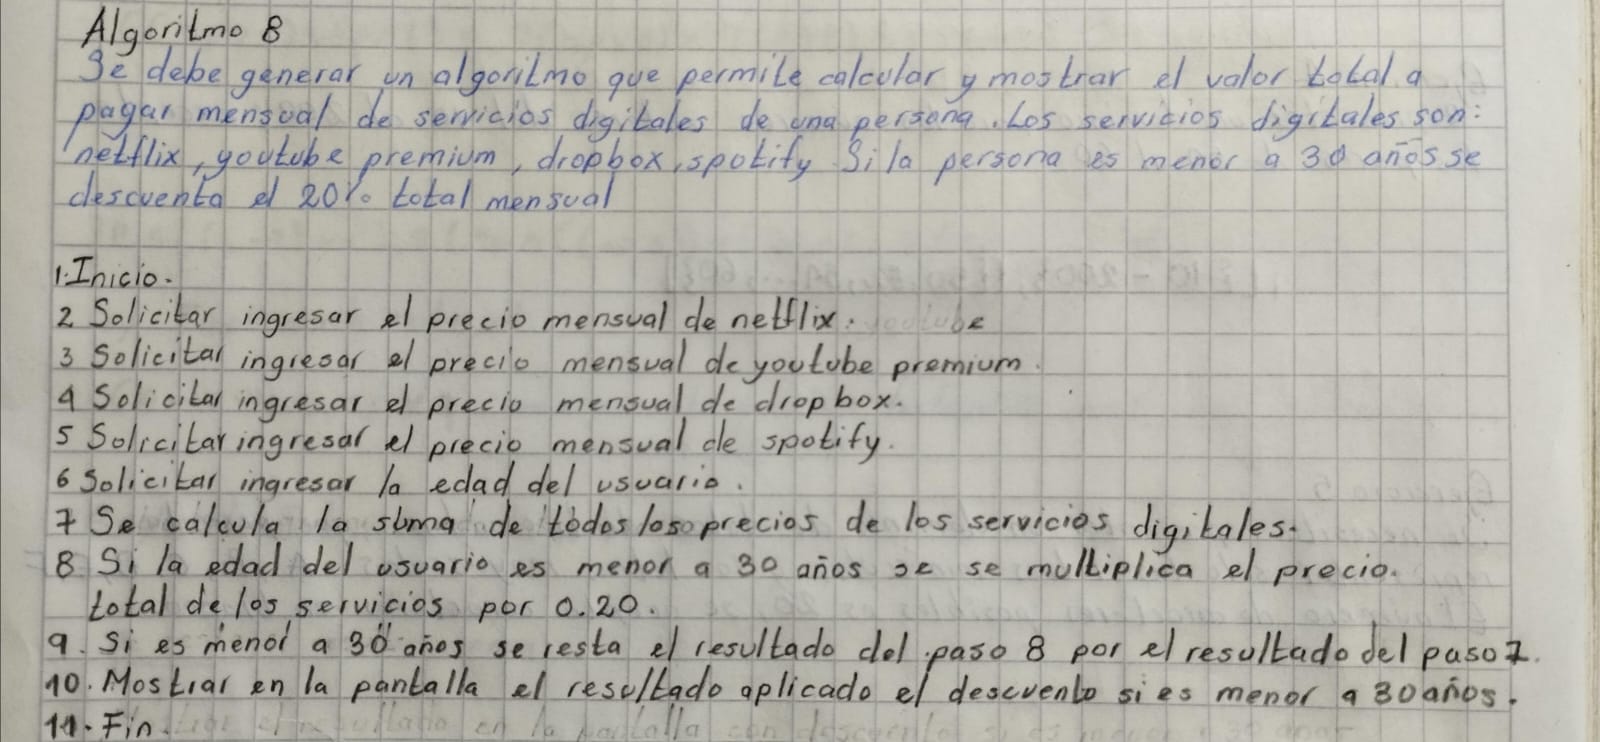 Algoritmo 8
Se debe generar un algoritmo que permite calcular y mostrar el valor total a
pagar mensual de servicios digitales de una persona. Los servicios digitales son:
netflix, youtube premium, dropbox, spotify. Si la persona es menor a 30 años se
descuenta el 20% total mensual
1. Inicio.
2 Solicitar ingresar el precio mensual de netflix.
3 Solicitar ingresar el precio mensual de youtube premium.
4 Solicitar ingresar el precio mensual de dropbox.
5 Solicitar ingresar el precio mensual de spotify.
6 Solicitar ingresar la edad del usuario.
7 Se calcula la suma de todos los precios de los servicios digitales.
8 Si la edad del usuario es menor a 30 años se se multiplica el precio.
total de los servicios por 0.20.
9. Si es menor a 30 años se resta el resultado del paso 8 por el resultado del paso 7.
10. Mostrar en la pantalla el resultado aplicado el descuento si es menor a 30 años.
11. Fin.